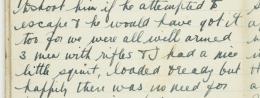 to shoot him if he attempted to
escape & he would have got it
too for we were all well armed
3 men with rifles & I had a nice
little spirit, loaded & ready but
happily there was no need for